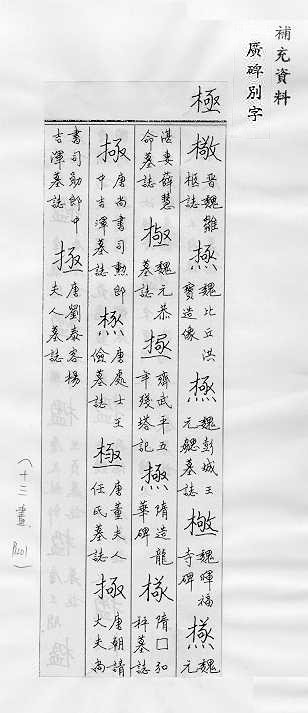 補充資料
廣碑別字
極
極 晉魏雛柩誌 極 魏比丘洪寶造像 極 魏彭城王元勰墓誌 極 魏暉福寺碑 極 魏元
湛妻薛慧命墓誌 極 魏元恭墓誌 極 齊武平五年殘塔記 極 隋造龍華碑 極 隋□弘秤墓誌
極 唐尚書司勲郎中吉渾墓誌 極 唐處士王儉墓誌 極 唐董夫人任氏墓誌 極 唐朝請大夫尚
書司勛郎中吉渾墓誌 極 唐劉泰客楊夫人墓誌
(十三畫 P.201)